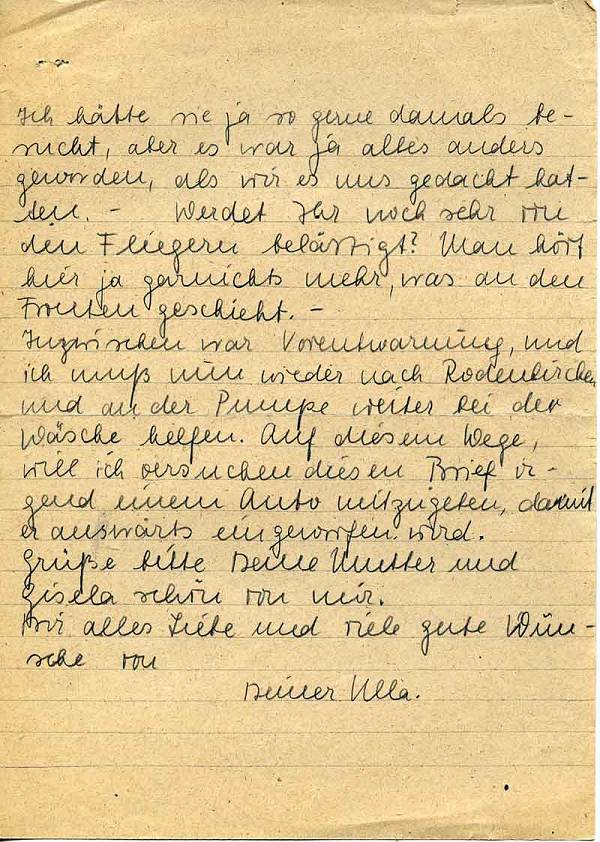 Ich hätte sie ja so gerne damals be-
sucht, aber es war ja alles anders
geworden, als wir es uns gedacht hat-
ten. - Werdet Ihr noch sehr von
den Fliegern belästigt? Man hört
hier ja garnichts mehr, was an den
Fronten geschieht. -
Inzwischen war Vorentwarnung, und
ich muß nun wieder nach Rodenkirchen
und an der Pumpe weiter bei der
Wäsche helfen. Auf diesem Wege,
will ich versuchen diesen Brief ir-
gend einem Auto mitzugeben, damit
er auswärts eingeworfen wird.
Grüße bitte Deine Mutter und
Gisela schön von mir.
Dir alles Liebe und viele gute Wün-
sche von
Deiner Ulla.